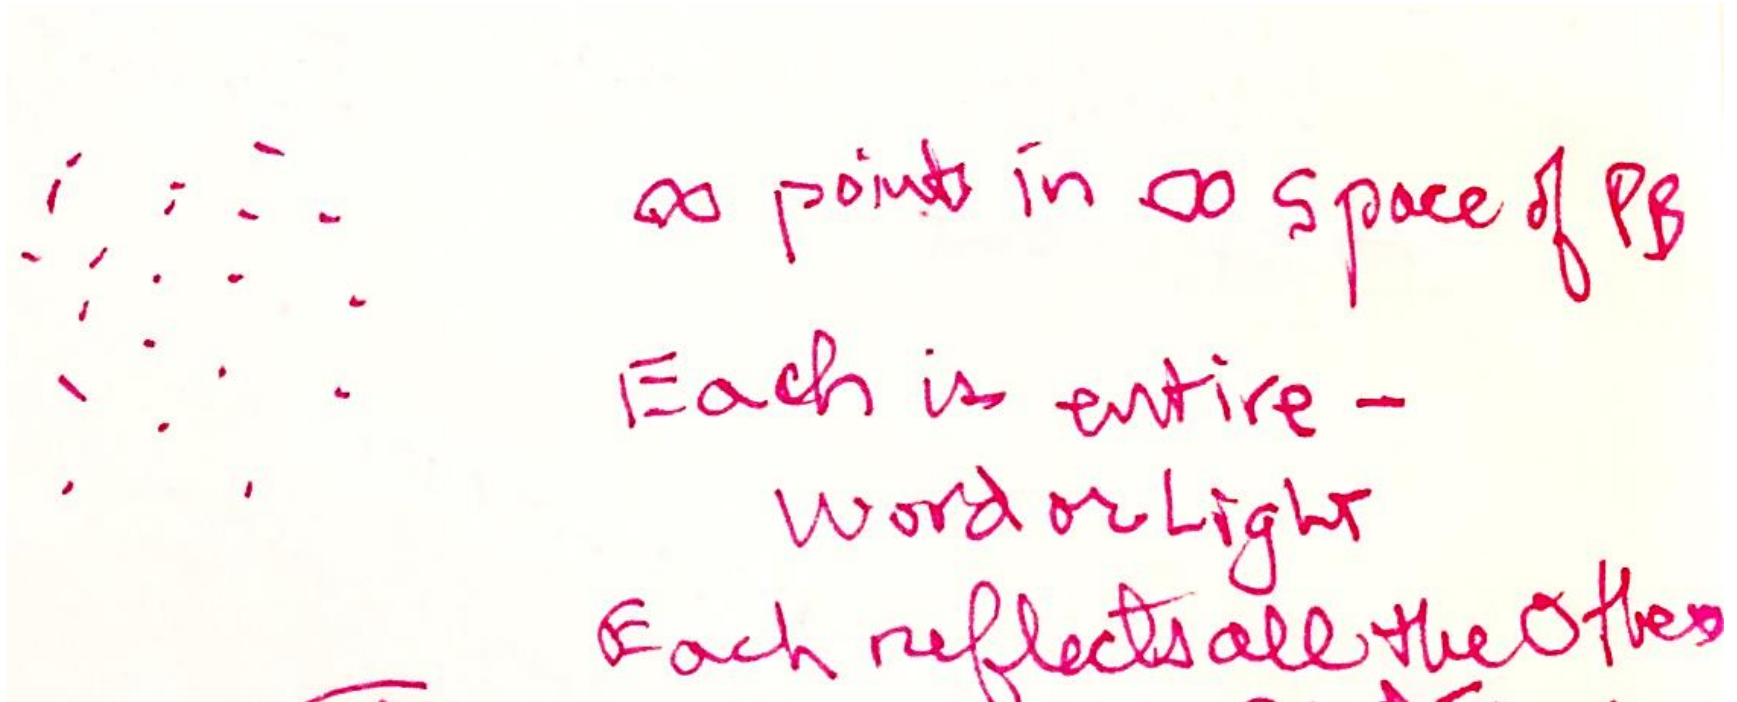 ∞ points in ∞ space of PB
Each is entire -
Word or Light
Each reflects all the Others